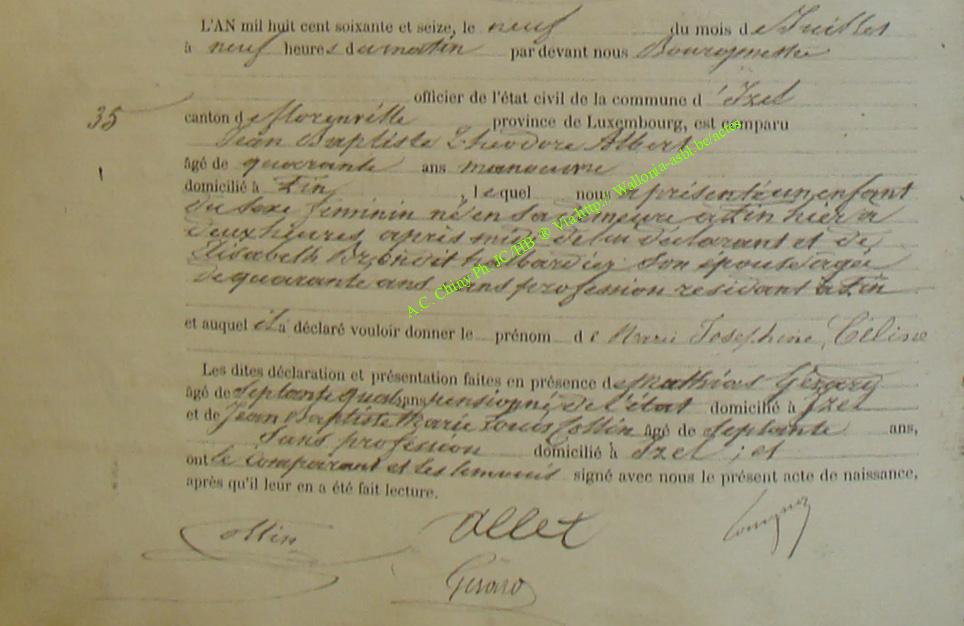 L'AN mil huit cent soixante et seize, le neuf du mois de Juillet
à neuf heures du matin par devant nous Bourgmestre
officier de l'état civil de la commune d'Izel
35
canton de Florenville province de Luxembourg, est comparu
Jean Baptiste Théodore Albert
âgé de quarante ans manoeuvre
domicilié à Fin, lequel nous a présenté un enfant
du sexe féminin né en sa demeure à Fin hier à
deux heures après midi de lui déclarant et de
Elisabeth son épouse agée
de quarante ans sans profession résidant à Fin
et auquel il a déclaré vouloir donner le prénom de Marie Josephine Céline
Les dites déclaration et présentation faites en présence de Mathias Gérard
âgé de septante quatre ans pensionné de l'état domicilié à Izel
et de Jean Baptiste Marie Louis Collin âgé de septante ans,
sans profession domicilié à Izel ; et
ont le comparant et les temoins signé avec nous le présent acte de naissance,
après qu'il leur en a été fait lecture.
Collin
Gérard
A.C. Chiny Ph. JC/HB ® Via http:// Wallonia-asbl.be/actes